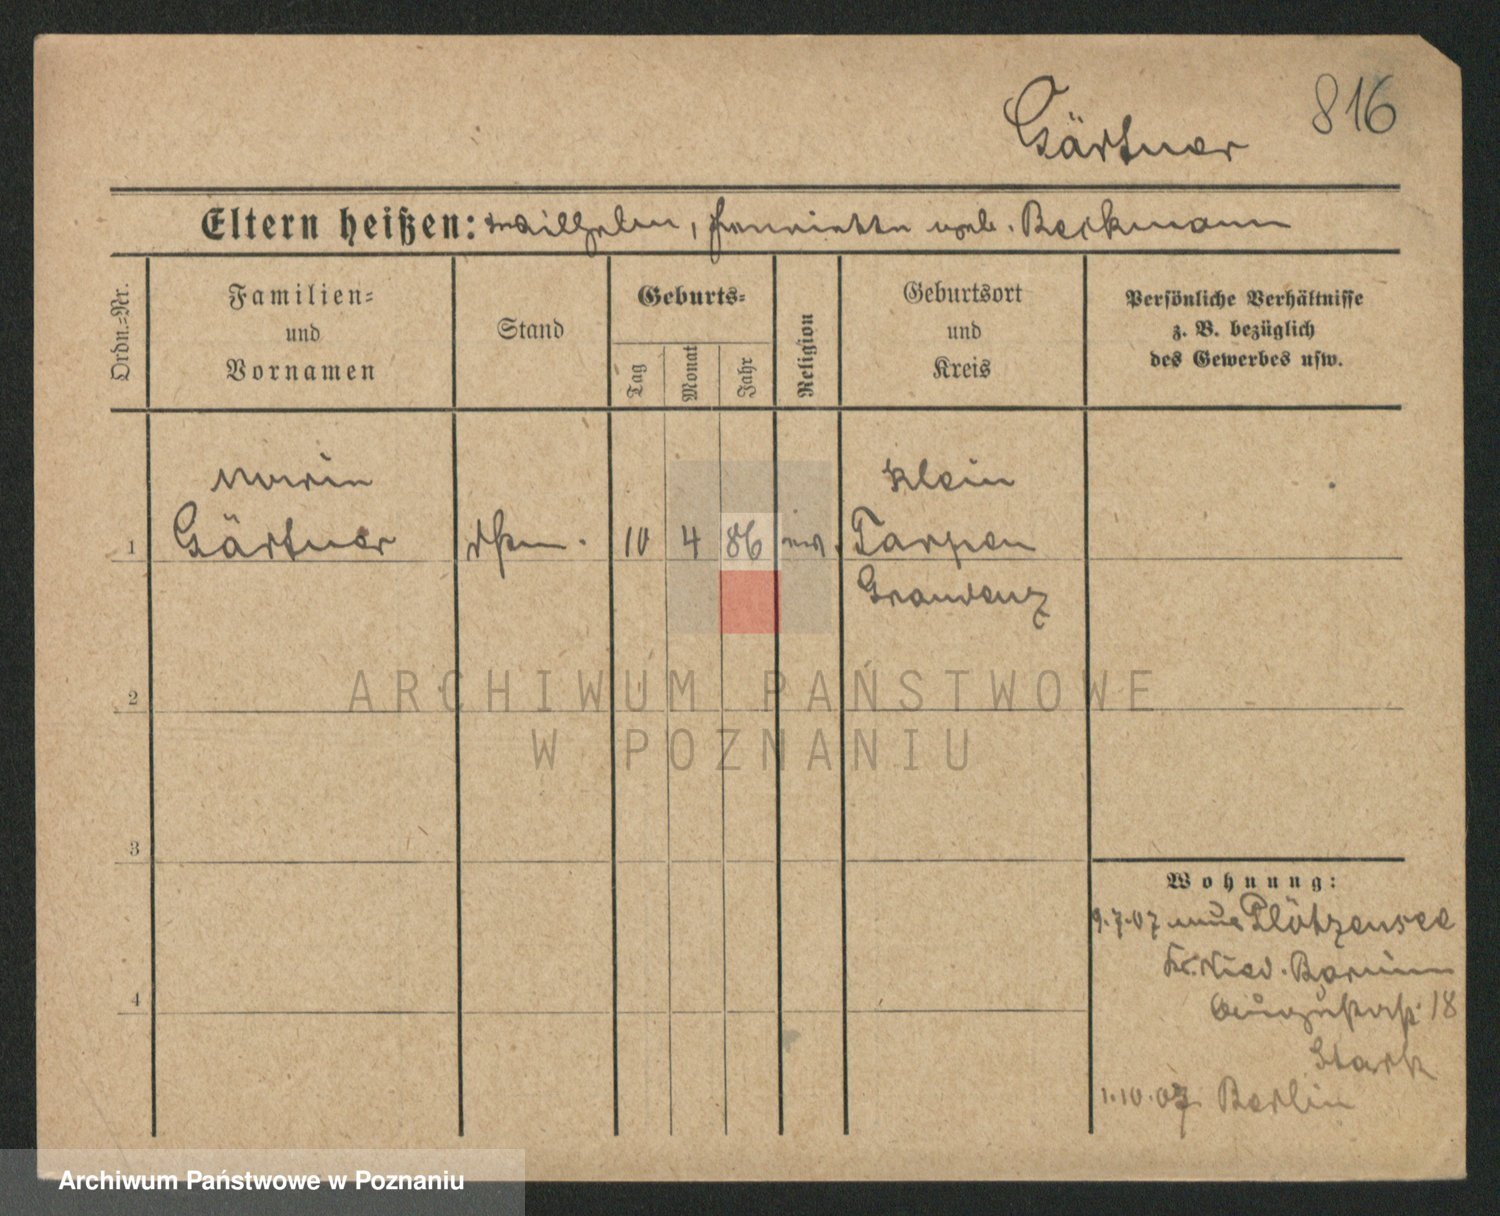 816
Gärtner
Eltern heißen: Wilhelm, Henriette geb. Beckmann
Ordn.=Nr.
Familien=
und
Vornamen
Stand
Geburts=
Tag
Monat
Jahr
Religion
Geburtsort
und
Kreis
Persönliche Verhältnisse
z. B. bezüglich
des Gewerbes usw.
Klein
1 Gärtner 10 4 86 Tarpen
Graudenz
ARCHIWUM PAŃSTWOWE
2
W POZNANIU
3
Wohnung:
9.7.07 Plötzensee
Kr. Nied. Barnim
Augustastr. 18
Stark
4
1.10.07 Berlin
Archiwum Państwowe w Poznaniu